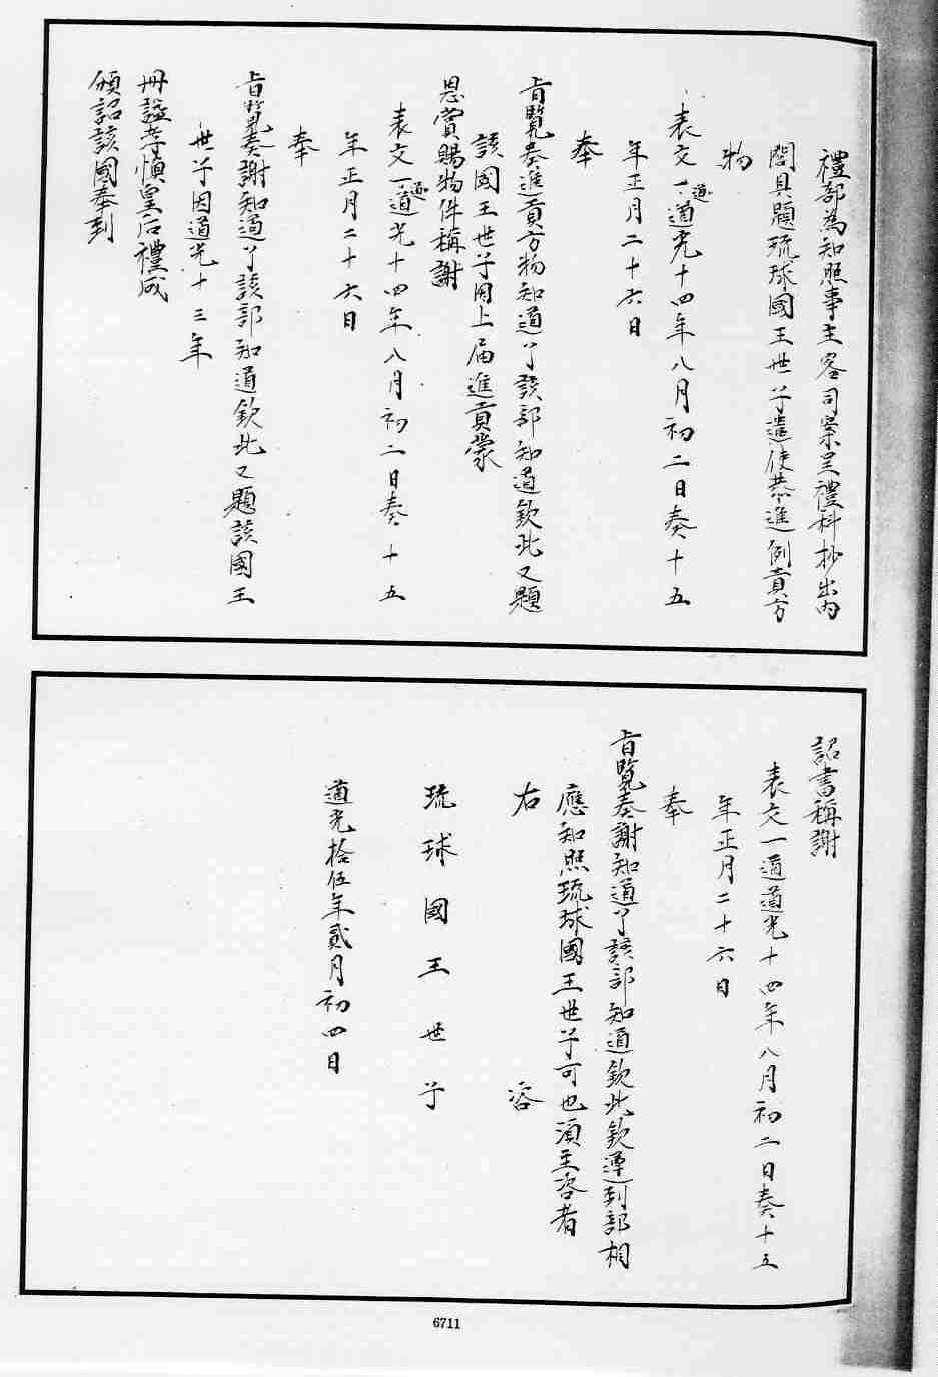 禮部為知照事主客司案呈禮科抄出內
閣具題琉球國王世子遣使恭進例貢方
物
表文一道道光十四年八月初二日奏十五
年正月二十六日
奉
旨覽奏進貢方物知道了該部知道欽此又題
該國王世子因上届進貢蒙
恩賞賜物件稱謝
表文一道道光十四年八月初二日奏十五
年正月二十六日
奉
旨覽奏謝知道了該部知道欽此又題該國王
世子因道光十三年
冊謚孝慎皇后禮成
頒詔該國奉到
詔書稱謝
表文一道道光十四年八月初二日奏十五
年正月二十六日
奉
旨覽奏謝知道了該部知道欽此欽遵到部相
應知照琉球國王世子可也須至咨者
右咨
琉球國王世子
道光拾伍年貳月初四日
6711